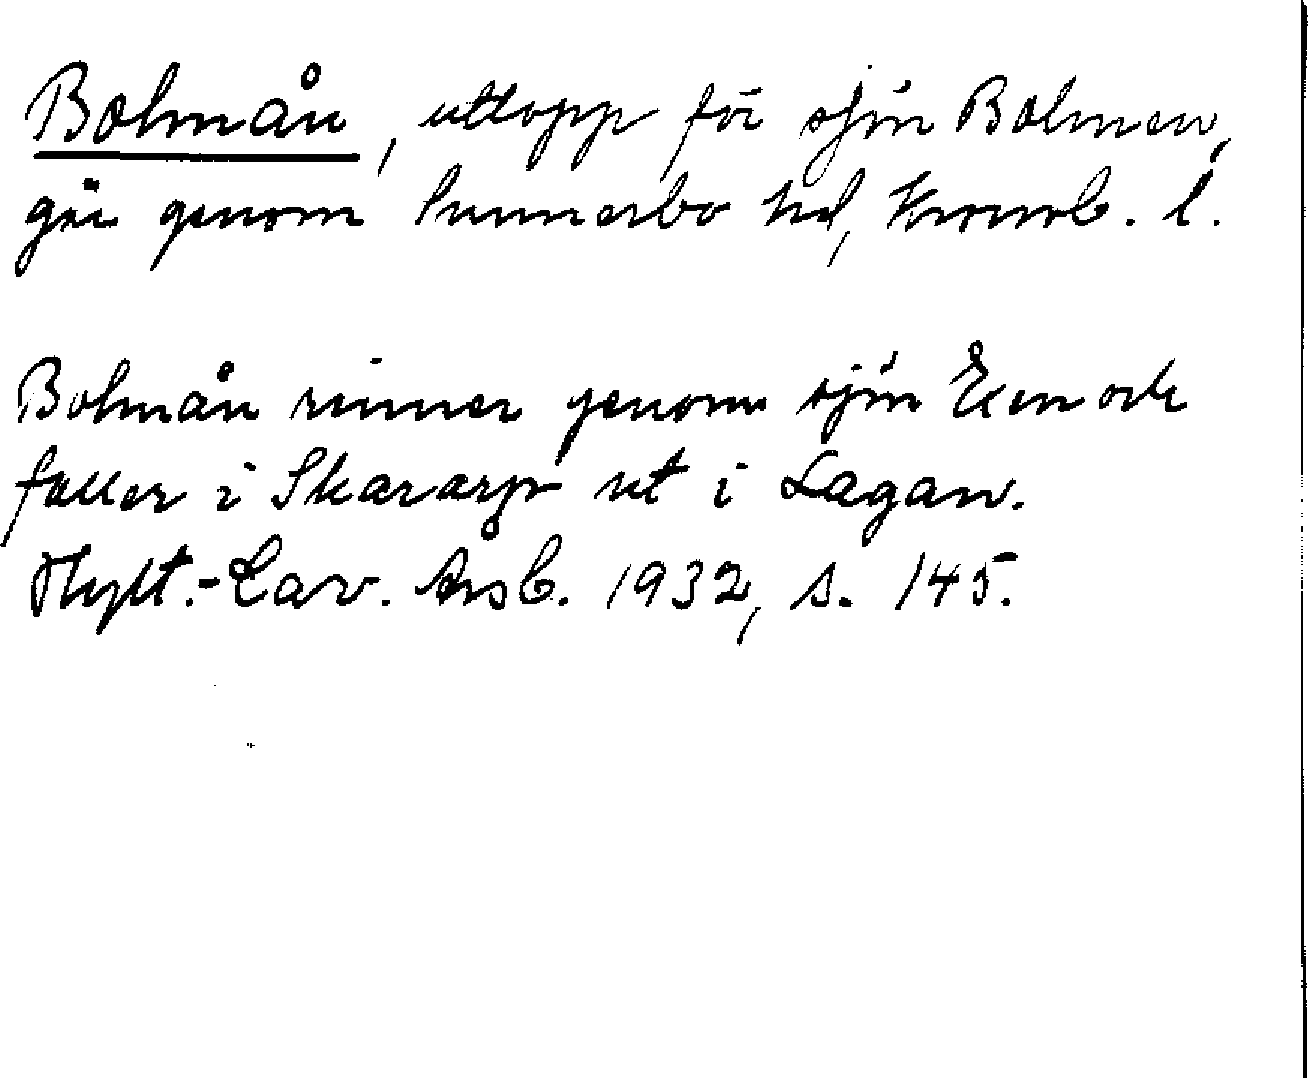 Bolmån, utlopp för sjön Bolmen,
går genom Sunnerbo hd, Kronob. l.
Bolmån rinner genom sjön Exen och
faller i Skararp ut i Lagan.
Hylt.-Cav. Årsb. 1932, s. 145.